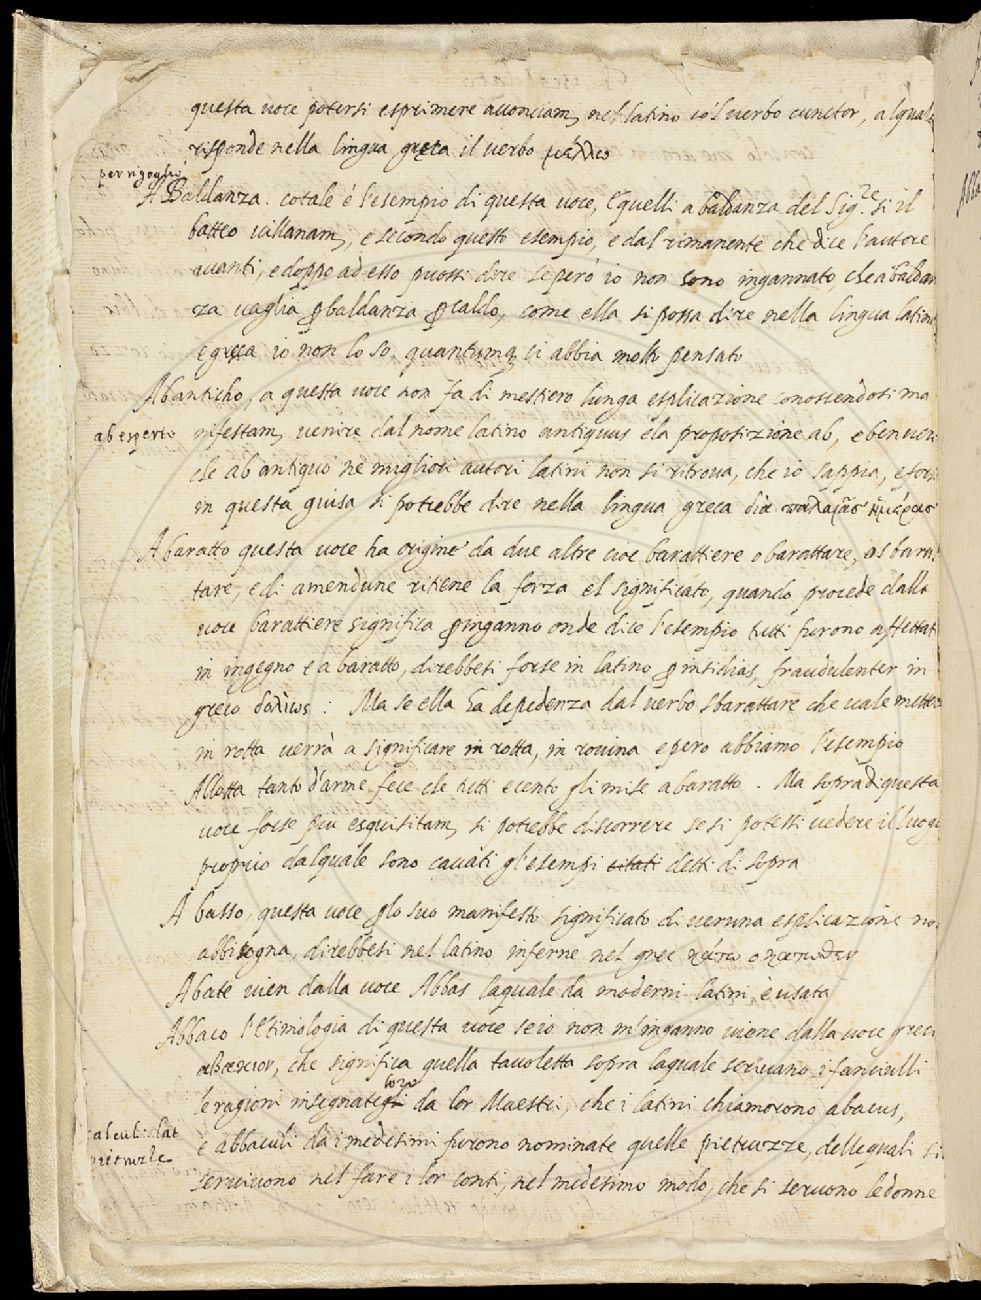 questa uoce potersi esprimere acconciam, nel latino co'l uerbo cunctor, alqual
risponde nella lingua greca il uerbo μέλλω
per rigoglio
A Baldanza. cotale é l'esempio di questa uoce, E quelli a baldanza del Sig.re si il
batteo uillanam, e secondo questo esempio, e dal rimanente che dice l'autore
auanti, e doppo ad esso puossi dire se però io non sono ingannato, che a baldan
za uaglia ꝑ baldanza ꝑ caldo, come ella si possa dire nella lingua latina
e greca io non lo so quantunq ci abbia molto pensato
Abanticho, a questa uoce non fa di mestiero lunga esplicazione conoscendosi ma
ab esperto
nifestam, uenire dal nome latino antiquus e la proposizione ab, e ben uero
che ab antiquo ne migliori autori latini non si ritroua, che io sappia, e forse
in questa guisa si potrebbe dire nella lingua greca διὰ παλαιᾶσ ἡμέρασ
A baratto questa uoce ha origine da due altre cioe barattiere o barattare, o sbarat
tare, e di amendune ritiene la forza e'l significato, quando procede dalla
uoce barattiere significa ꝑ inganno onde dice l'esempio tutti furono assettati
in ingegno e a baratto, direbbesi forse in latino ꝑ insidias, fraudulenter in
greco δολίως: Ma se ella ha depēdenza dal uerbo sbarattare che uale mettere
in rotta uerrà a significare in rotta, in rouina e pero abbiamo l'esempio
Allotta tanto d'arme fece che tutti e cento gli mise a baratto. Ma sopra di questa
uoce forse piu esquisitam, si potrebbe discorrere se si potessi uedere il luogo
proprio dalquale sono cauati gl'esempi citati detti di sopra
A basso, questa uoce ꝑ lo suo manifesto significato di ueruna esplicazione no
abbisogna, direbbesi nel latino inferne nel grec κάτω o κατωθεν
Abate uien dalla uoce Abbas laquale da moderni latini e usata
Abbaco l'Etimologia di questa uoce se io non m'inganno uiene dalla uoce greca
αβακιον, che significa quella tauoletta sopra laquale scriuano i fanciulli
loro
le ragioni insegnategli da lor Maestri, che i latini chiamorono abacus,
calculi lat
pietruzle
e abbaculi da i medesimi furono nominate quelle pietruzze, delle quali si
seruiuono nel fare i lor conti, nel medesimo modo, che si seruono le donne